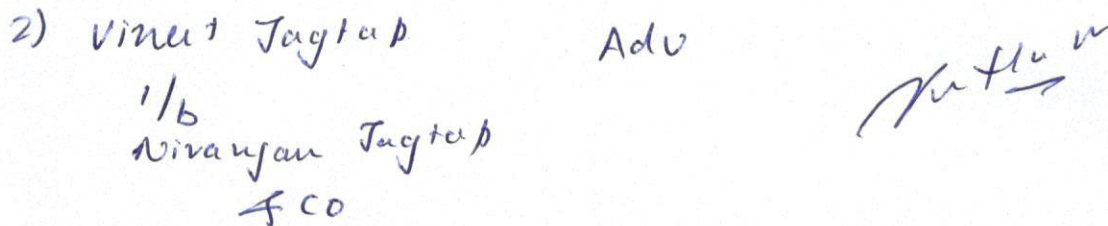 2) Vinut Jagtap Adv
i/b
Niranjan Jagtap
& CO